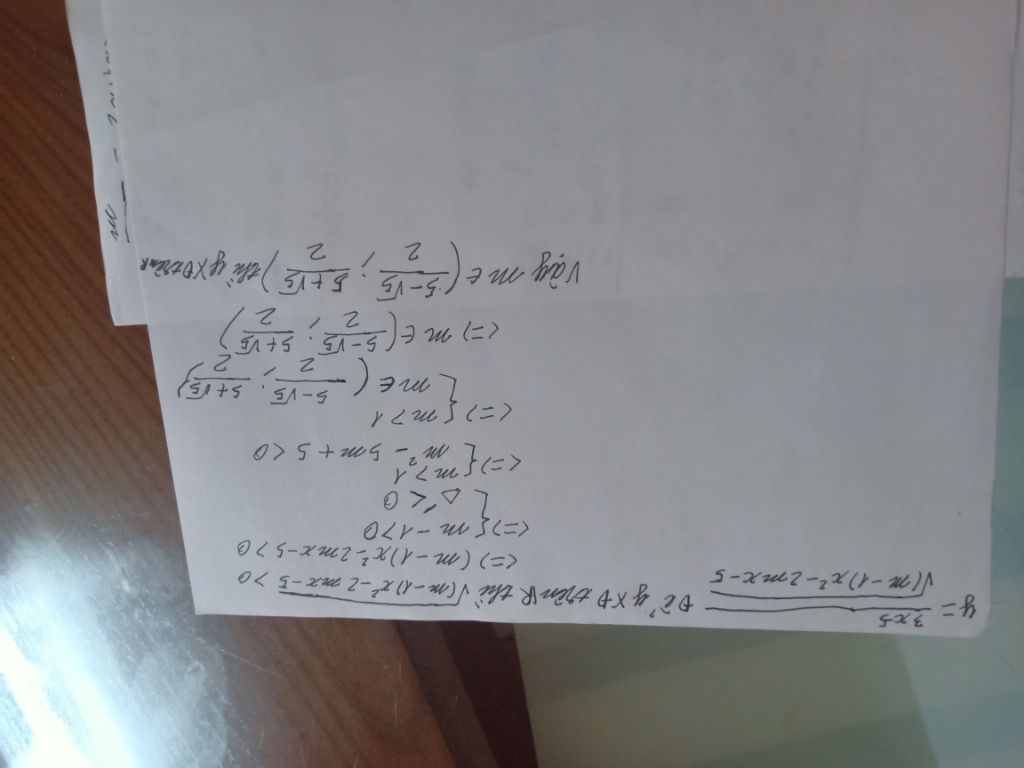 y = \frac{3x-5}{\sqrt{(m-1)x^2-2mx-5}} Để y XĐ trên R thì \sqrt{(m-1)x^2-2mx-5} > 0
<=> (m-1)x^2-2mx-5 > 0
<=> { m-1 > 0
Δ' < 0
<=> { m > 1
m^2 - 5m + 5 < 0
<=> { m > 1
m ∈ (\frac{5-\sqrt{5}}{2}; \frac{5+\sqrt{5}}{2})
<=> m ∈ (\frac{5-\sqrt{5}}{2}; \frac{5+\sqrt{5}}{2})
Vậy m ∈ (\frac{5-\sqrt{5}}{2}; \frac{5+\sqrt{5}}{2}) thì y XĐ trên R